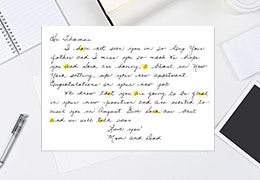 Hi Thomas
I have not seen you in so long. Your
father and I miss you so much. We hope
you and Sara are having a blast in New
York setting up your new apartment.
Congratulations on your new job.
We know that you are going to be great
in your new position and are excited to
visit you in August. Give Sara our best
and we will talk soon.
Love you!
Mom and Dad